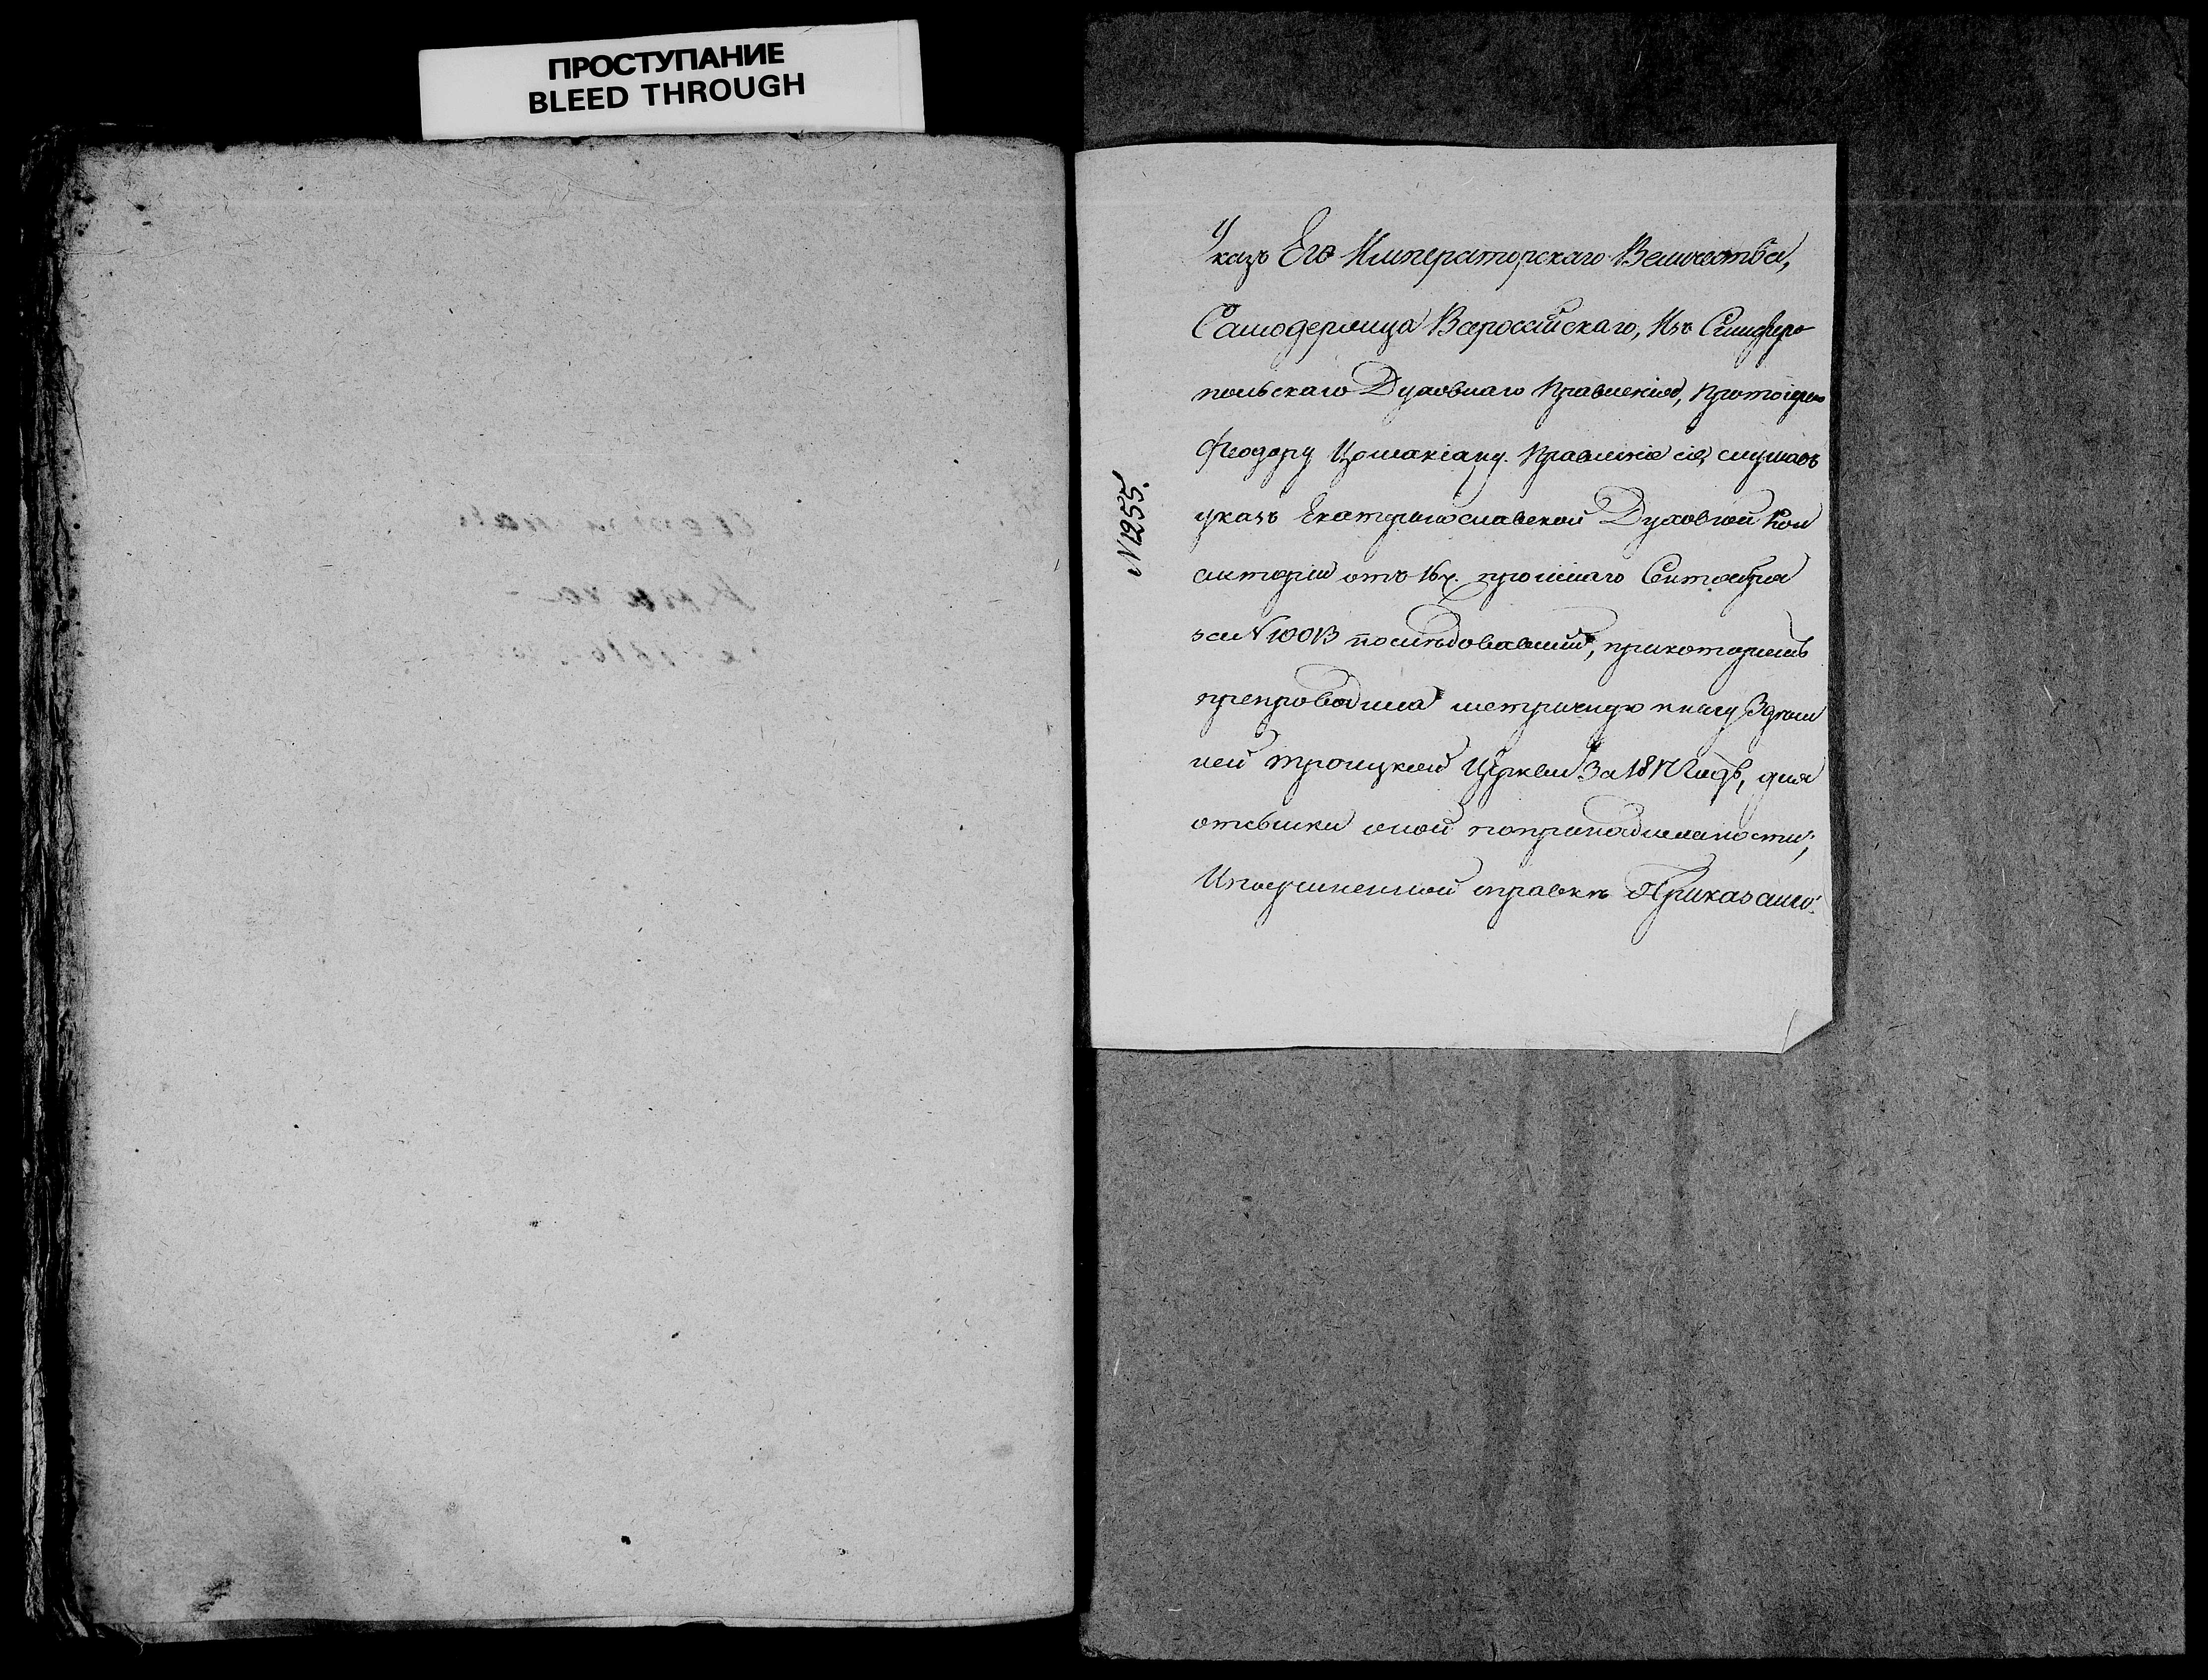 ПРОСТУПАНИЕ
BLEED THROUGH
Указъ Его Императорскаго Величества,
Самодержца Всероссійскаго, Изъ Симферо
польскаго Духовнаго Правленія, протоіерею
Феодору Цомакіану. Правленіе сіе, слушавъ
указъ Екатеринославской Духовной Кон
систоріи отъ 16х. прошлаго Сентября
за N 10013 последовавшій, прикоторомъ
препроводила метричную книгу Здеш
ней троицкой Церкви За 1817 Годъ, для
отсылки оной попринадлежности;
Ипоучиненной справке Приказано:
N 1255.